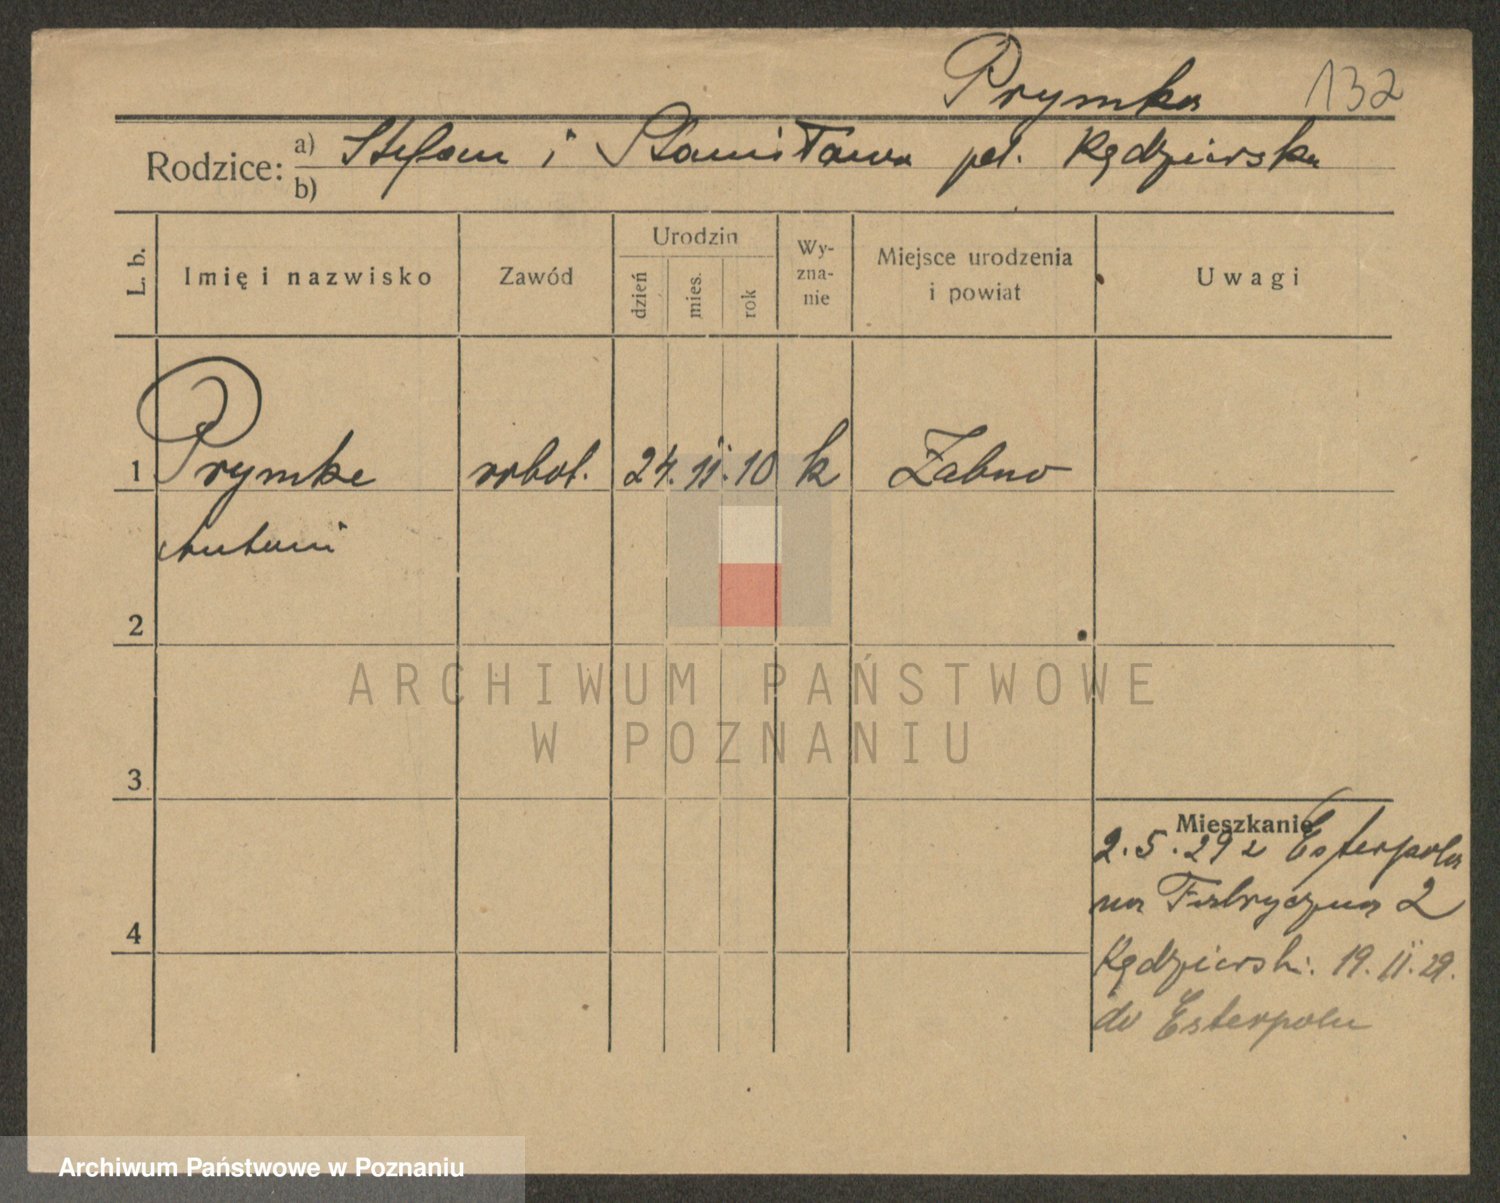 Prymka 132
Rodzice: a) Stefan i Stanisława
b)
L. b.
Imię i nazwisko
Zawód
Urodzin
dzień
mies.
rok
Wy-
zna-
nie
Miejsce urodzenia
i powiat
Uwagi
1 Prymke robot. 24. II. 10 k Żabno
Antoni
2
3
4
Mieszkanie
2.5.29 z Esterpola
na Fabryczna 2
Kędzierski. 19. II. 29.
do Esterpolu
ARCHIWUM PAŃSTWOWE
W POZNANIU
Archiwum Państwowe w Poznaniu